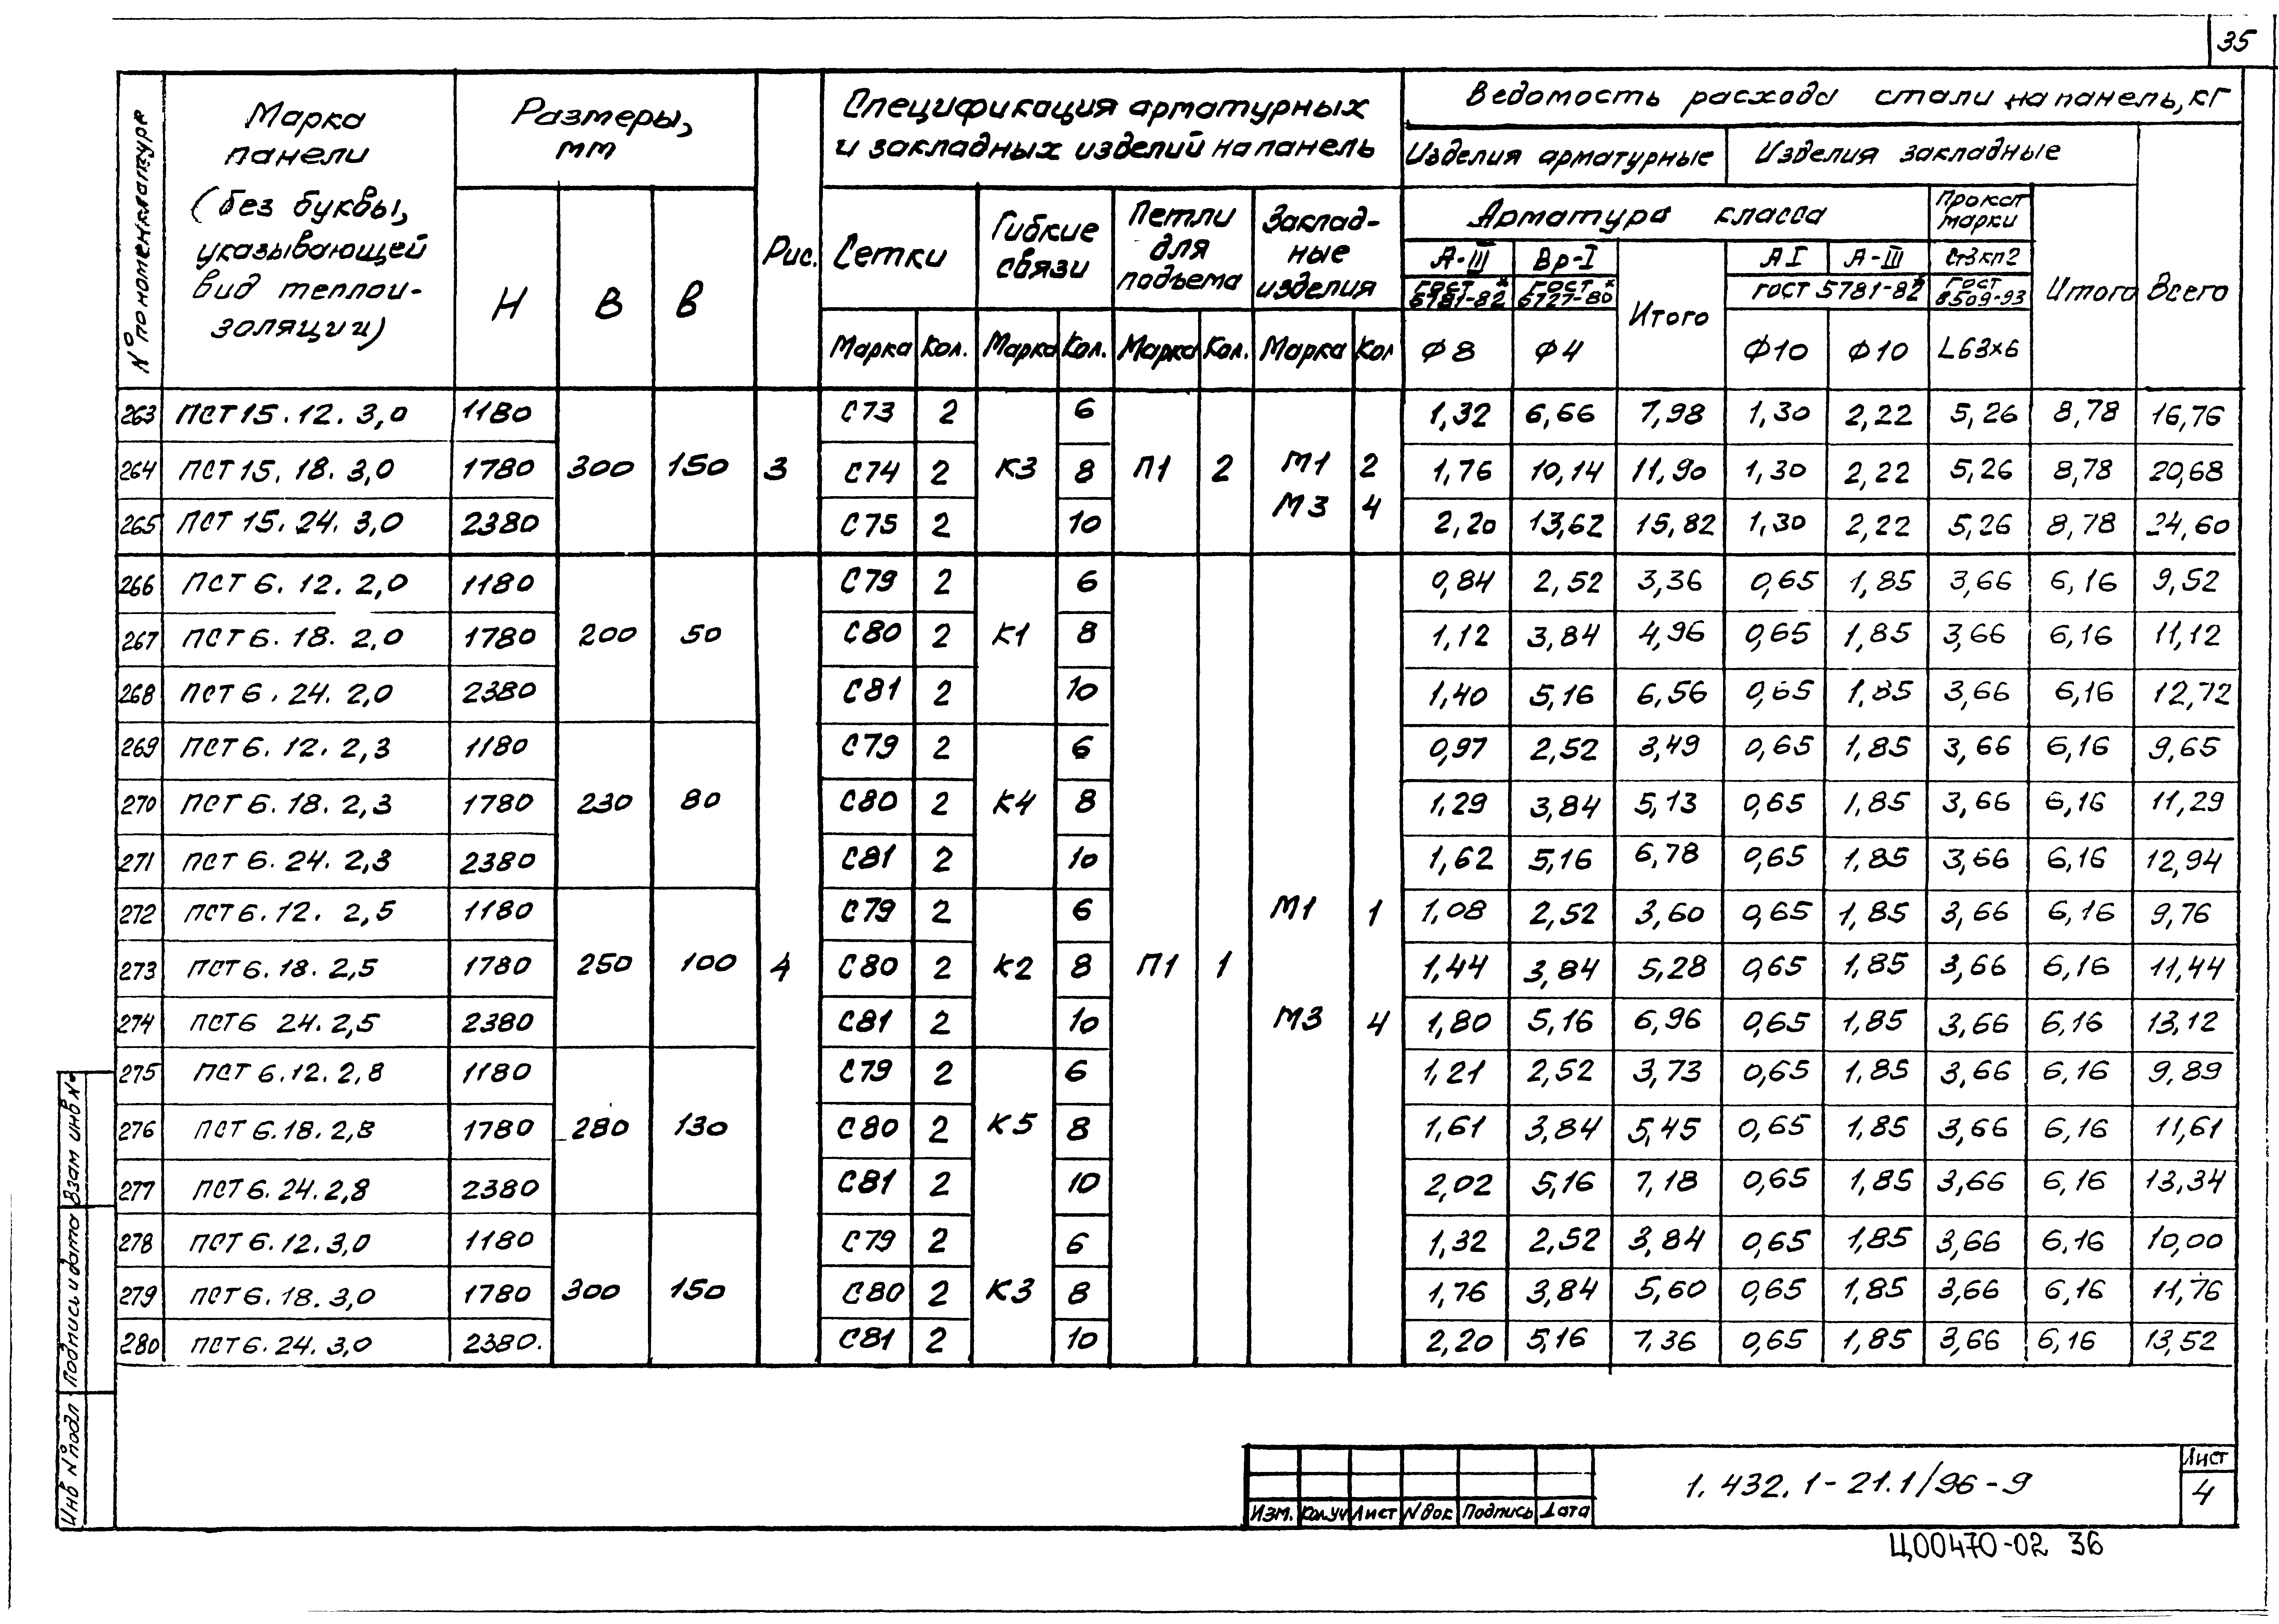 35
№ по номенклатуре
Марка панели (без буквы, указывающей вид теплоизоляции)
Размеры, мм
Н В в
Рис.
Спецификация арматурных и закладных изделий на панель
Сетки Гибкие связи Петли для подъема Закладные изделия
Марка Кол. Марка Кол. Марка Кол. Марка Кол
Ведомость расхода стали на панель, кг
Изделия арматурные Изделия закладные
Арматура класса Прокат марки
А-III Вр-I Итого АI А-III Ст3кп2 Итого Всего
ГОСТ 5781-82* ГОСТ 6727-80* ГОСТ 5781-82* ГОСТ 8509-93
Ф8 Ф4 Ф10 Ф10 L63х6
263 ПСТ15.12.3,0 1180 С73 2 6 1,32 6,66 7,98 1,30 2,22 5,26 8,78 16,76
264 ПСТ15.18.3,0 1780 300 150 3 С74 2 К3 8 П1 2 М1 2 1,76 10,14 11,90 1,30 2,22 5,26 8,78 20,68
М3 4
265 ПСТ 15.24.3,0 2380 С75 2 10 2,20 13,62 15,82 1,30 2,22 5,26 8,78 24,60
266 ПСТ 6.12.2,0 1180 С79 2 6 0,84 2,52 3,36 0,65 1,85 3,66 6,16 9,52
267 ПСТ6.18.2,0 1780 200 50 С80 2 К1 8 1,12 3,84 4,96 0,65 1,85 3,66 6,16 11,12
268 ПСТ6.24.2,0 2380 С81 2 10 1,40 5,16 6,56 0,65 1,85 3,66 6,16 12,72
269 ПСТ6.12.2,3 1180 С79 2 6 0,97 2,52 3,49 0,65 1,85 3,66 6,16 9,65
270 ПСТ6.18.2,3 1780 230 80 С80 2 К4 8 1,29 3,84 5,13 0,65 1,85 3,66 6,16 11,29
271 ПСТ 6.24.2,3 2380 С81 2 10 1,62 5,16 6,78 0,65 1,85 3,66 6,16 12,94
272 ПСТ6.12.2,5 1180 С79 2 6 М1 1 1,08 2,52 3,60 0,65 1,85 3,66 6,16 9,76
273 ПСТ6.18.2,5 1780 250 100 4 С80 2 К2 8 П1 1 1,44 3,84 5,28 0,65 1,85 3,66 6,16 11,44
274 ПСТ6 24.2,5 2380 С81 2 10 М3 4 1,80 5,16 6,96 0,65 1,85 3,66 6,16 13,12
275 ПСТ 6.12.2,8 1180 С79 2 6 1,21 2,52 3,73 0,65 1,85 3,66 6,16 9,89
276 ПСТ 6.18.2,8 1780 280 130 С80 2 К5 8 1,61 3,84 5,45 0,65 1,85 3,66 6,16 11,61
277 ПСТ6.24.2,8 2380 С81 2 10 2,02 5,16 7,18 0,65 1,85 3,66 6,16 13,34
278 ПСТ6.12.3,0 1180 С79 2 6 1,32 2,52 3,84 0,65 1,85 3,66 6,16 10,00
279 ПСТ6.18.3,0 1780 300 150 С80 2 К3 8 1,76 3,84 5,60 0,65 1,85 3,66 6,16 11,76
280 ПСТ6.24.3,0 2380. С81 2 10 2,20 5,16 7,36 0,65 1,85 3,66 6,16 13,52
Взам инв №
Подпись и дата
Инв № подл
Изм. Кол.уч Лист № док Подпись Дата
1.432.1-21.1/96-9
Лист
4
Ц00470-02 36